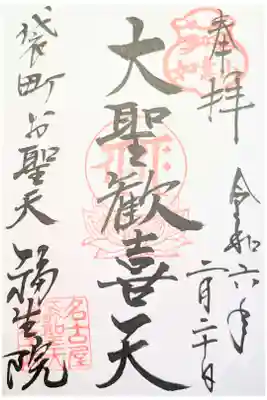 奉拝
令和六年
二月二十日
大聖歓喜天
袋町お聖天
福生院
名古屋